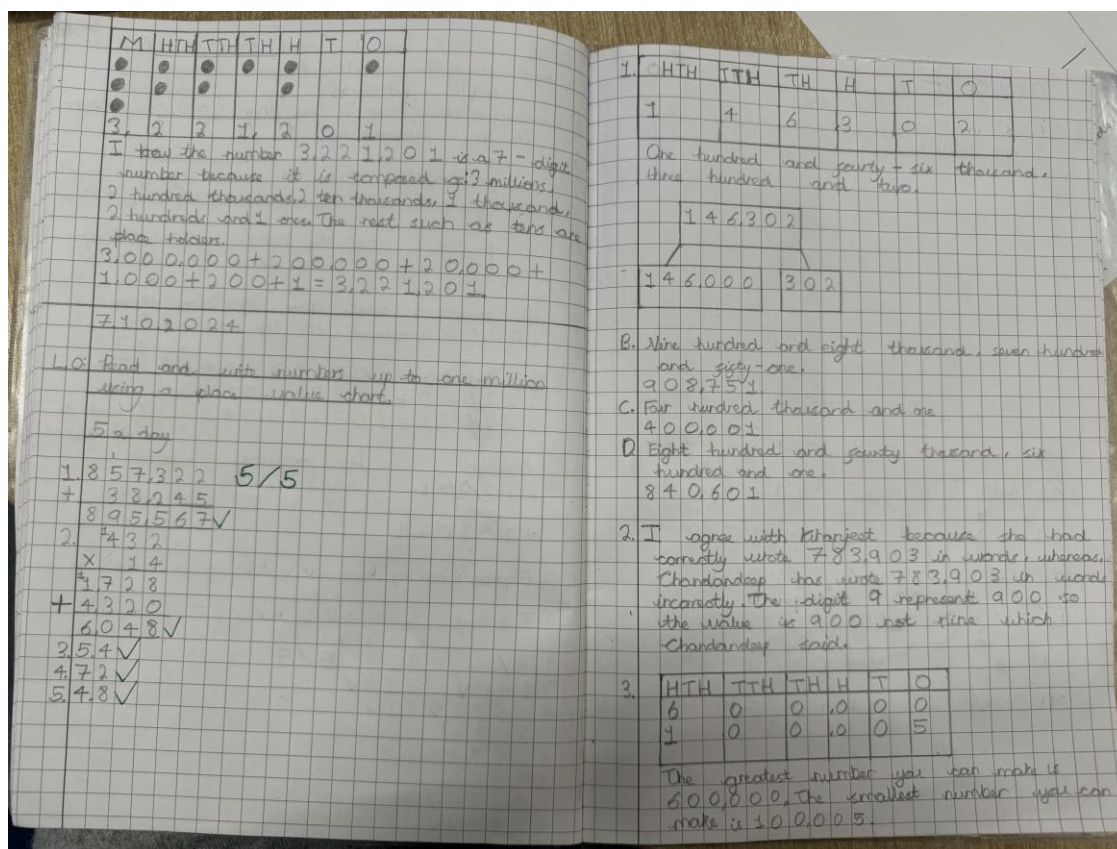 M HTH TTH TH H T O
3, 2 2 1, 2 0 1
I know the number 3,221,201 is a 7-digit
number because it is composed of: 3 millions,
2 hundred thousands, 2 ten thousands, 1 thousand,
2 hundreds and 1 ones. The rest such as tens are
place holders.
3,000,000 + 200,000 + 20,000 +
1,000 + 200 + 1 = 3,221,201
7.10.2024
L.O: Read and write numbers up to one million
using a place value chart.
5 a day
1. 857,322 5/5
+ 38,245
895,567 ✓
2. 432
x 14
1728
+ 4320
6,048 ✓
3. 54 ✓
4. 72 ✓
5. 4.8 ✓
1. HTH TTH TH H T O
1 4 6 3 0 2
One hundred and fourty-six thousand,
three hundred and two.
146302
146,000 302
B. Nine hundred and eight thousand, seven hundred
and fifty-one.
908,751
C. Four hundred thousand and one
400,001
D. Eight hundred and fourty thousand, six
hundred and one.
840,601
2. I agree with Kiranjeet because she had
correctly wrote 783,903 in words, whereas,
Chandandeep has wrote 783,903 in word
incorrectly. The digit 9 represent 900 so
the value is 900 not nine which
Chandandeep said.
3. HTH TTH TH H T O
6 0 0 0 0 0
1 0 0 0 0 5
The greatest number you can make is
600,000. The smallest number you can
make is 100,005.